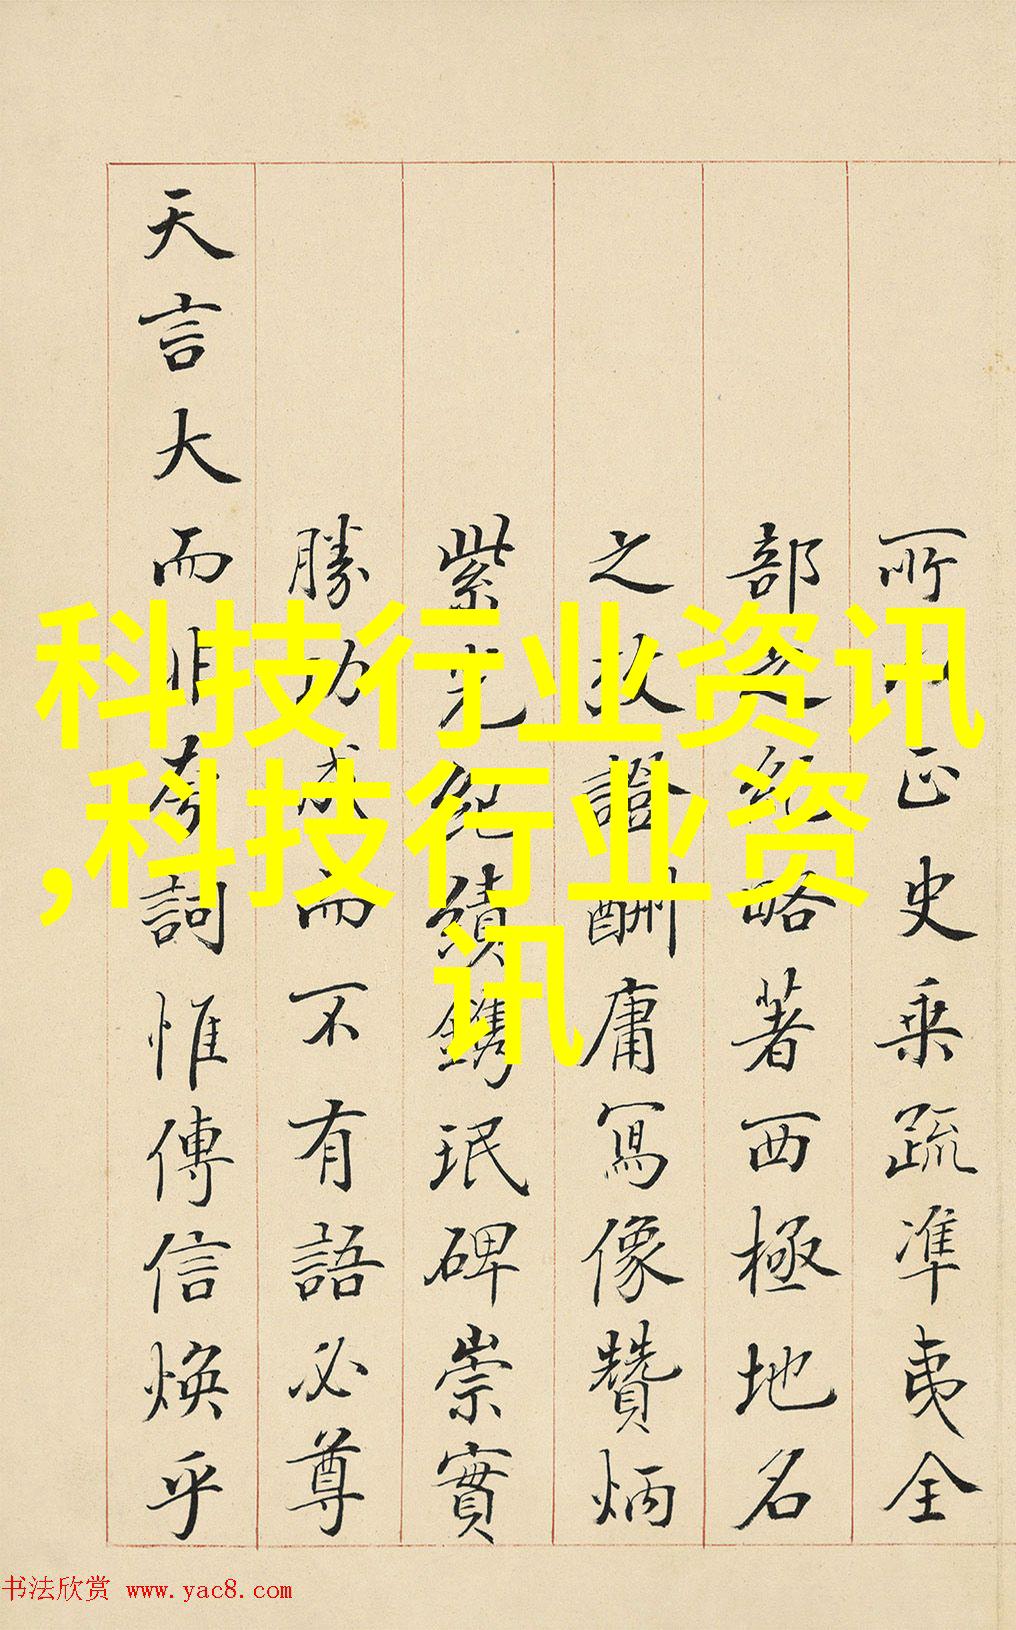 所正史乘疏準夷全
部之紀略著西極地名
之故證酬庸寫像贊炳
紫光紀績鐫珉碑崇實
勝功成而不有語必尊
天言大而非夸詞惟傳信煥乎
科技行业资讯
,科技行业资
讯
书法欣赏 www.yac8.com